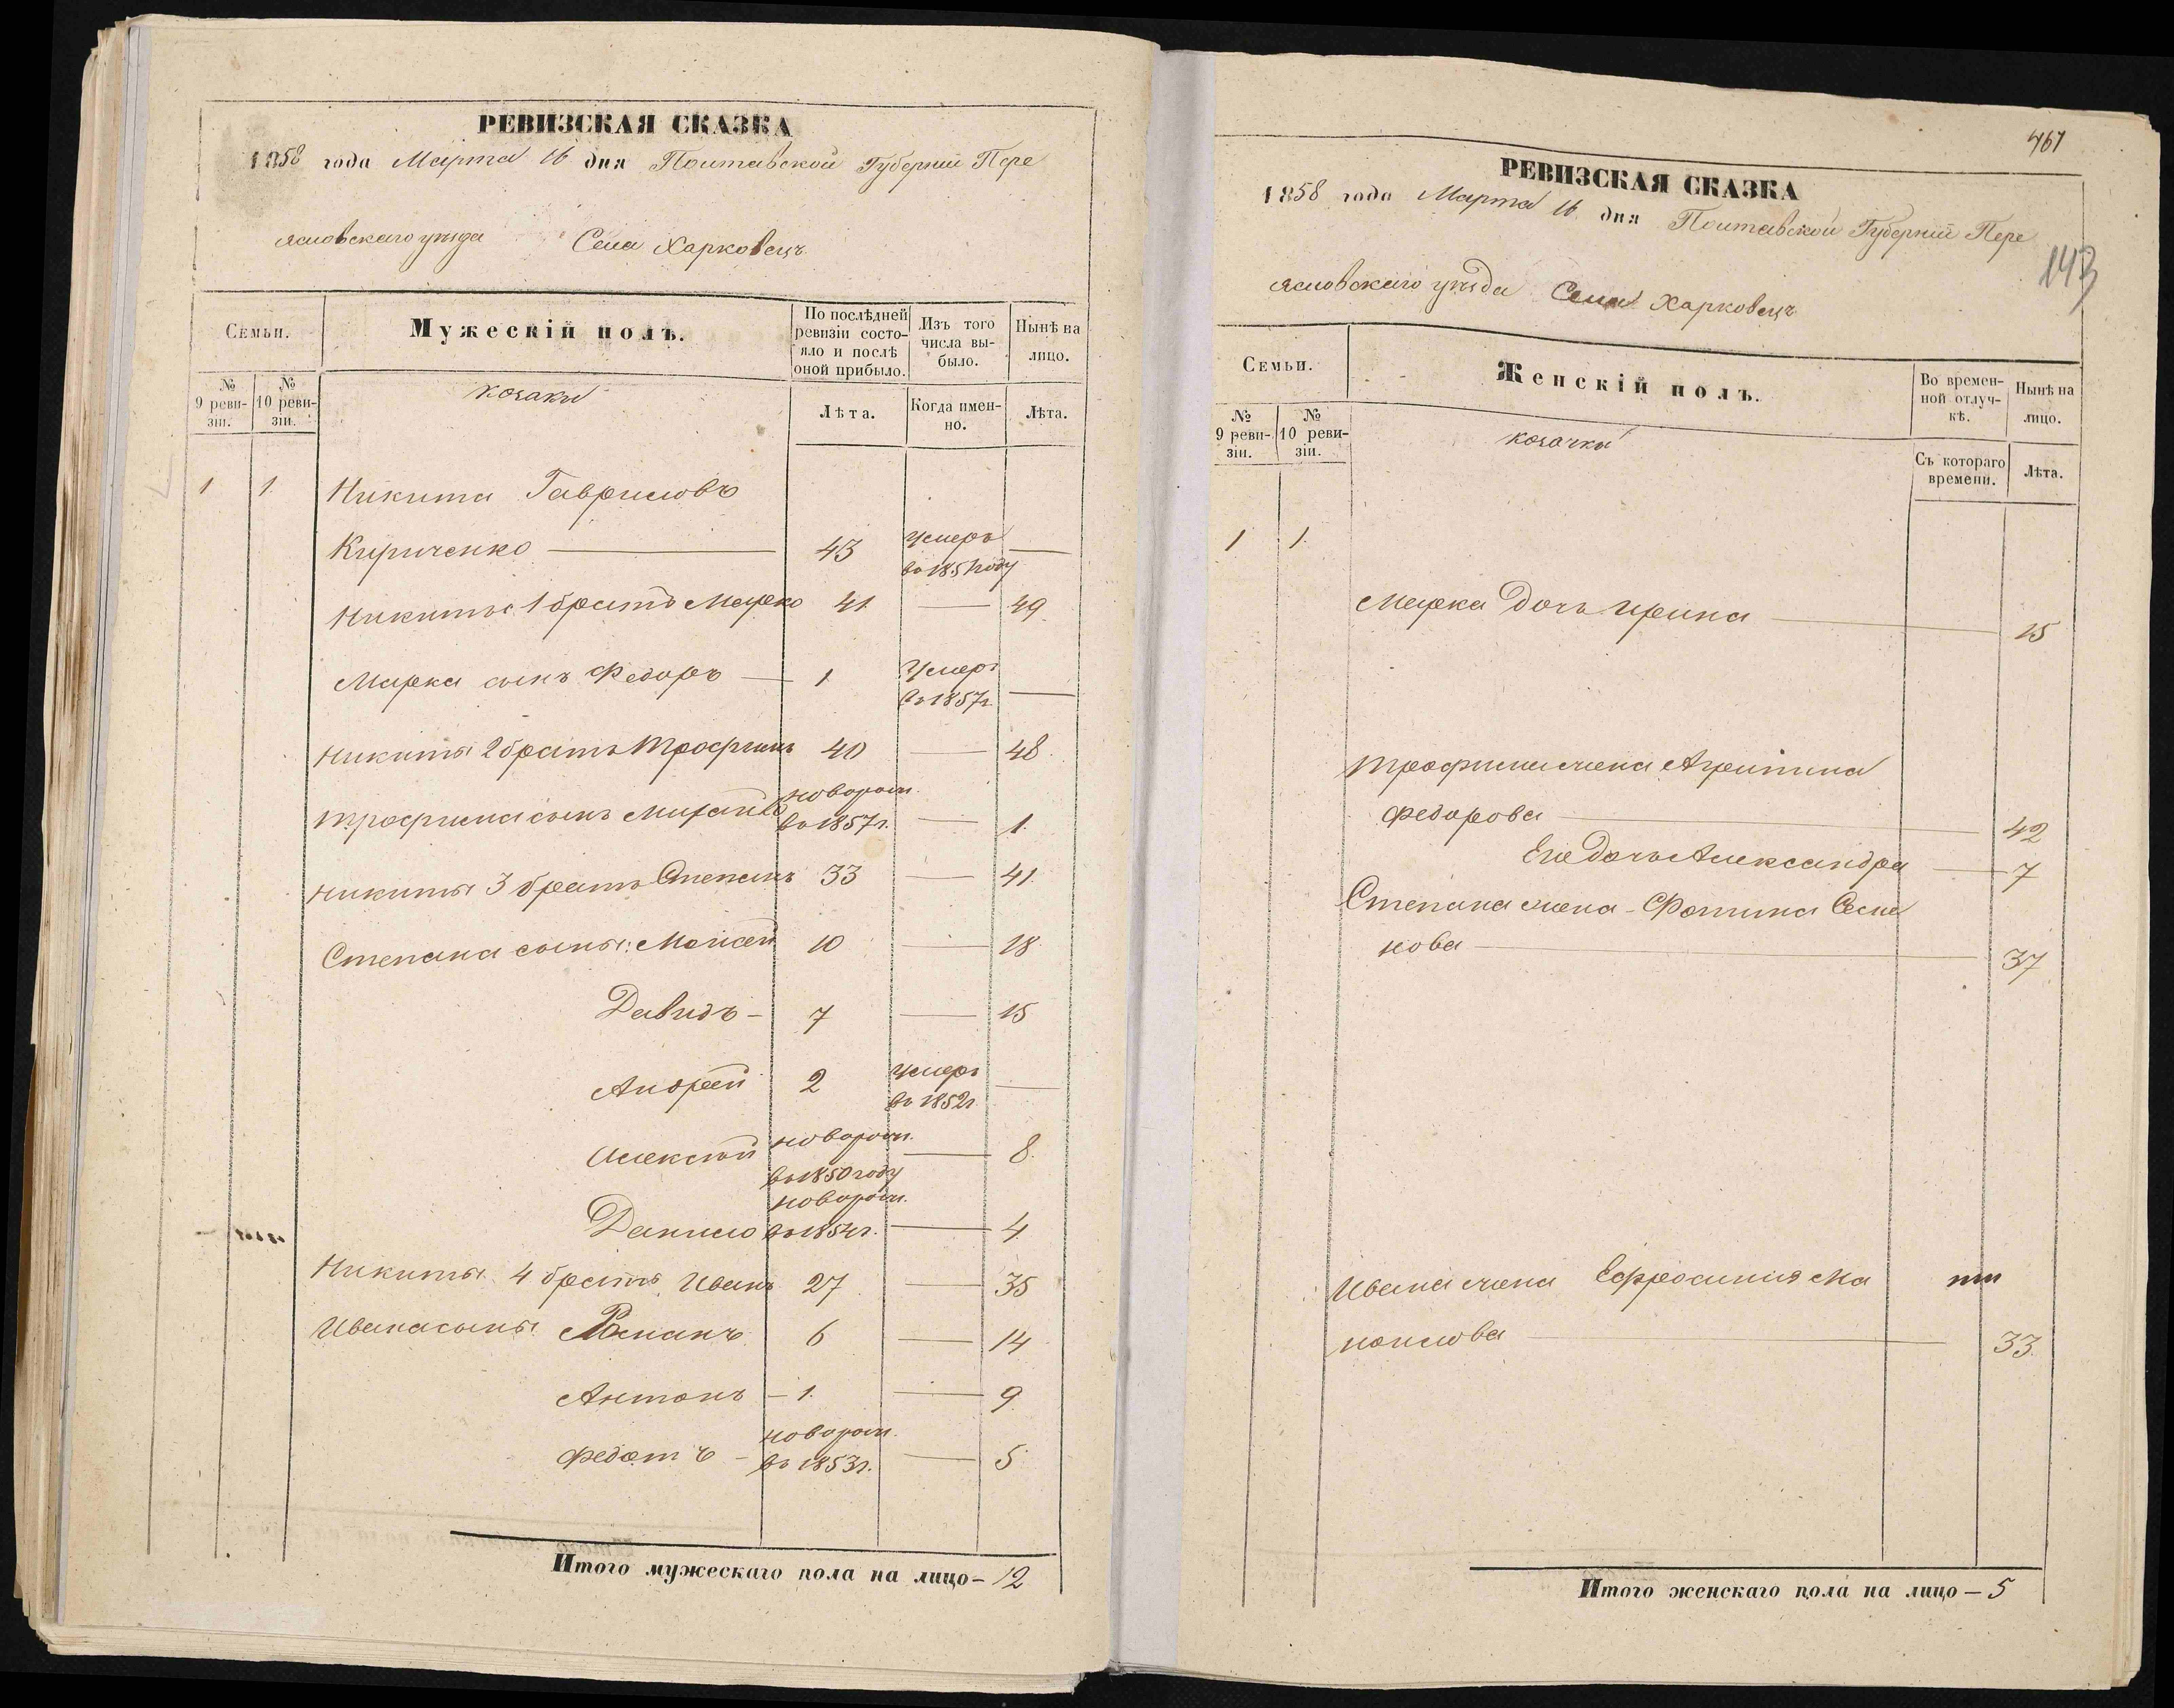 РЕВИЗСКАЯ СКАЗКА
1858 года Марта 16 дня Полтавской Губернии Пере
яславскаго уезда Села Харковецъ
Семьи.
Мужескій полъ.
По послѣдней ревизіи состо-
яло и послѣ оной прибыло.
Изъ того числа вы-
было.
Нынѣ на лицо.
№ 9 реви-
зіи.
№ 10 реви-
зіи.
козаки
Лѣта.
Когда имен-
но.
Лѣта.
1 1. Никита Гавриловъ
Кириченко — 43 умеръ —
въ 1851 году
Никиты 1 братъ Марко 41 — 49.
Марка сынъ Федоръ — 1 Умеръ
въ 1857 г. —
Никиты 2 братъ Трофимъ 40 — 48.
новорож.
Трофима сынъ въ 1857 г. — 1.
Никиты 3 братъ Степанъ 33 — 41.
Степана сыны: Моисей 10 — 18.
Давидъ — 7 — 15
Андрей 2 умеръ —
въ 1852 г.
Алексей новорож. — 8.
въ 1850 году
новорож.
Данило въ 1854 г. — 4.
Никиты 4 братъ Иванъ 27 — 35
Ивана сыны Романъ 6 — 14
Антонъ — 1. — 9.
новорож.
Федотъ — въ 1853 г. — 5.
Итого мужескаго пола на лицо — 12
461
РЕВИЗСКАЯ СКАЗКА
1858 года Марта 16 дня Полтавской Губернии Пере
143
яславскаго уезда Села Харковецъ
Семьи.
Женскій полъ.
Во времен-
ной отлуч-
кѣ.
Нынѣ на лицо.
№ 9 реви-
зіи.
№ 10 реви-
зіи.
козачки
Съ котораго времени.
Лѣта.
1 1.
Марка дочь Ирина — 15
Трофима жена
Федорова — 42
Его дочь Александра — 7
Степана жена - Фотина Семе
нова — 37
Ивана жена Ефросиния Ма
нойлова — 33.
Итого женскаго пола на лицо — 5